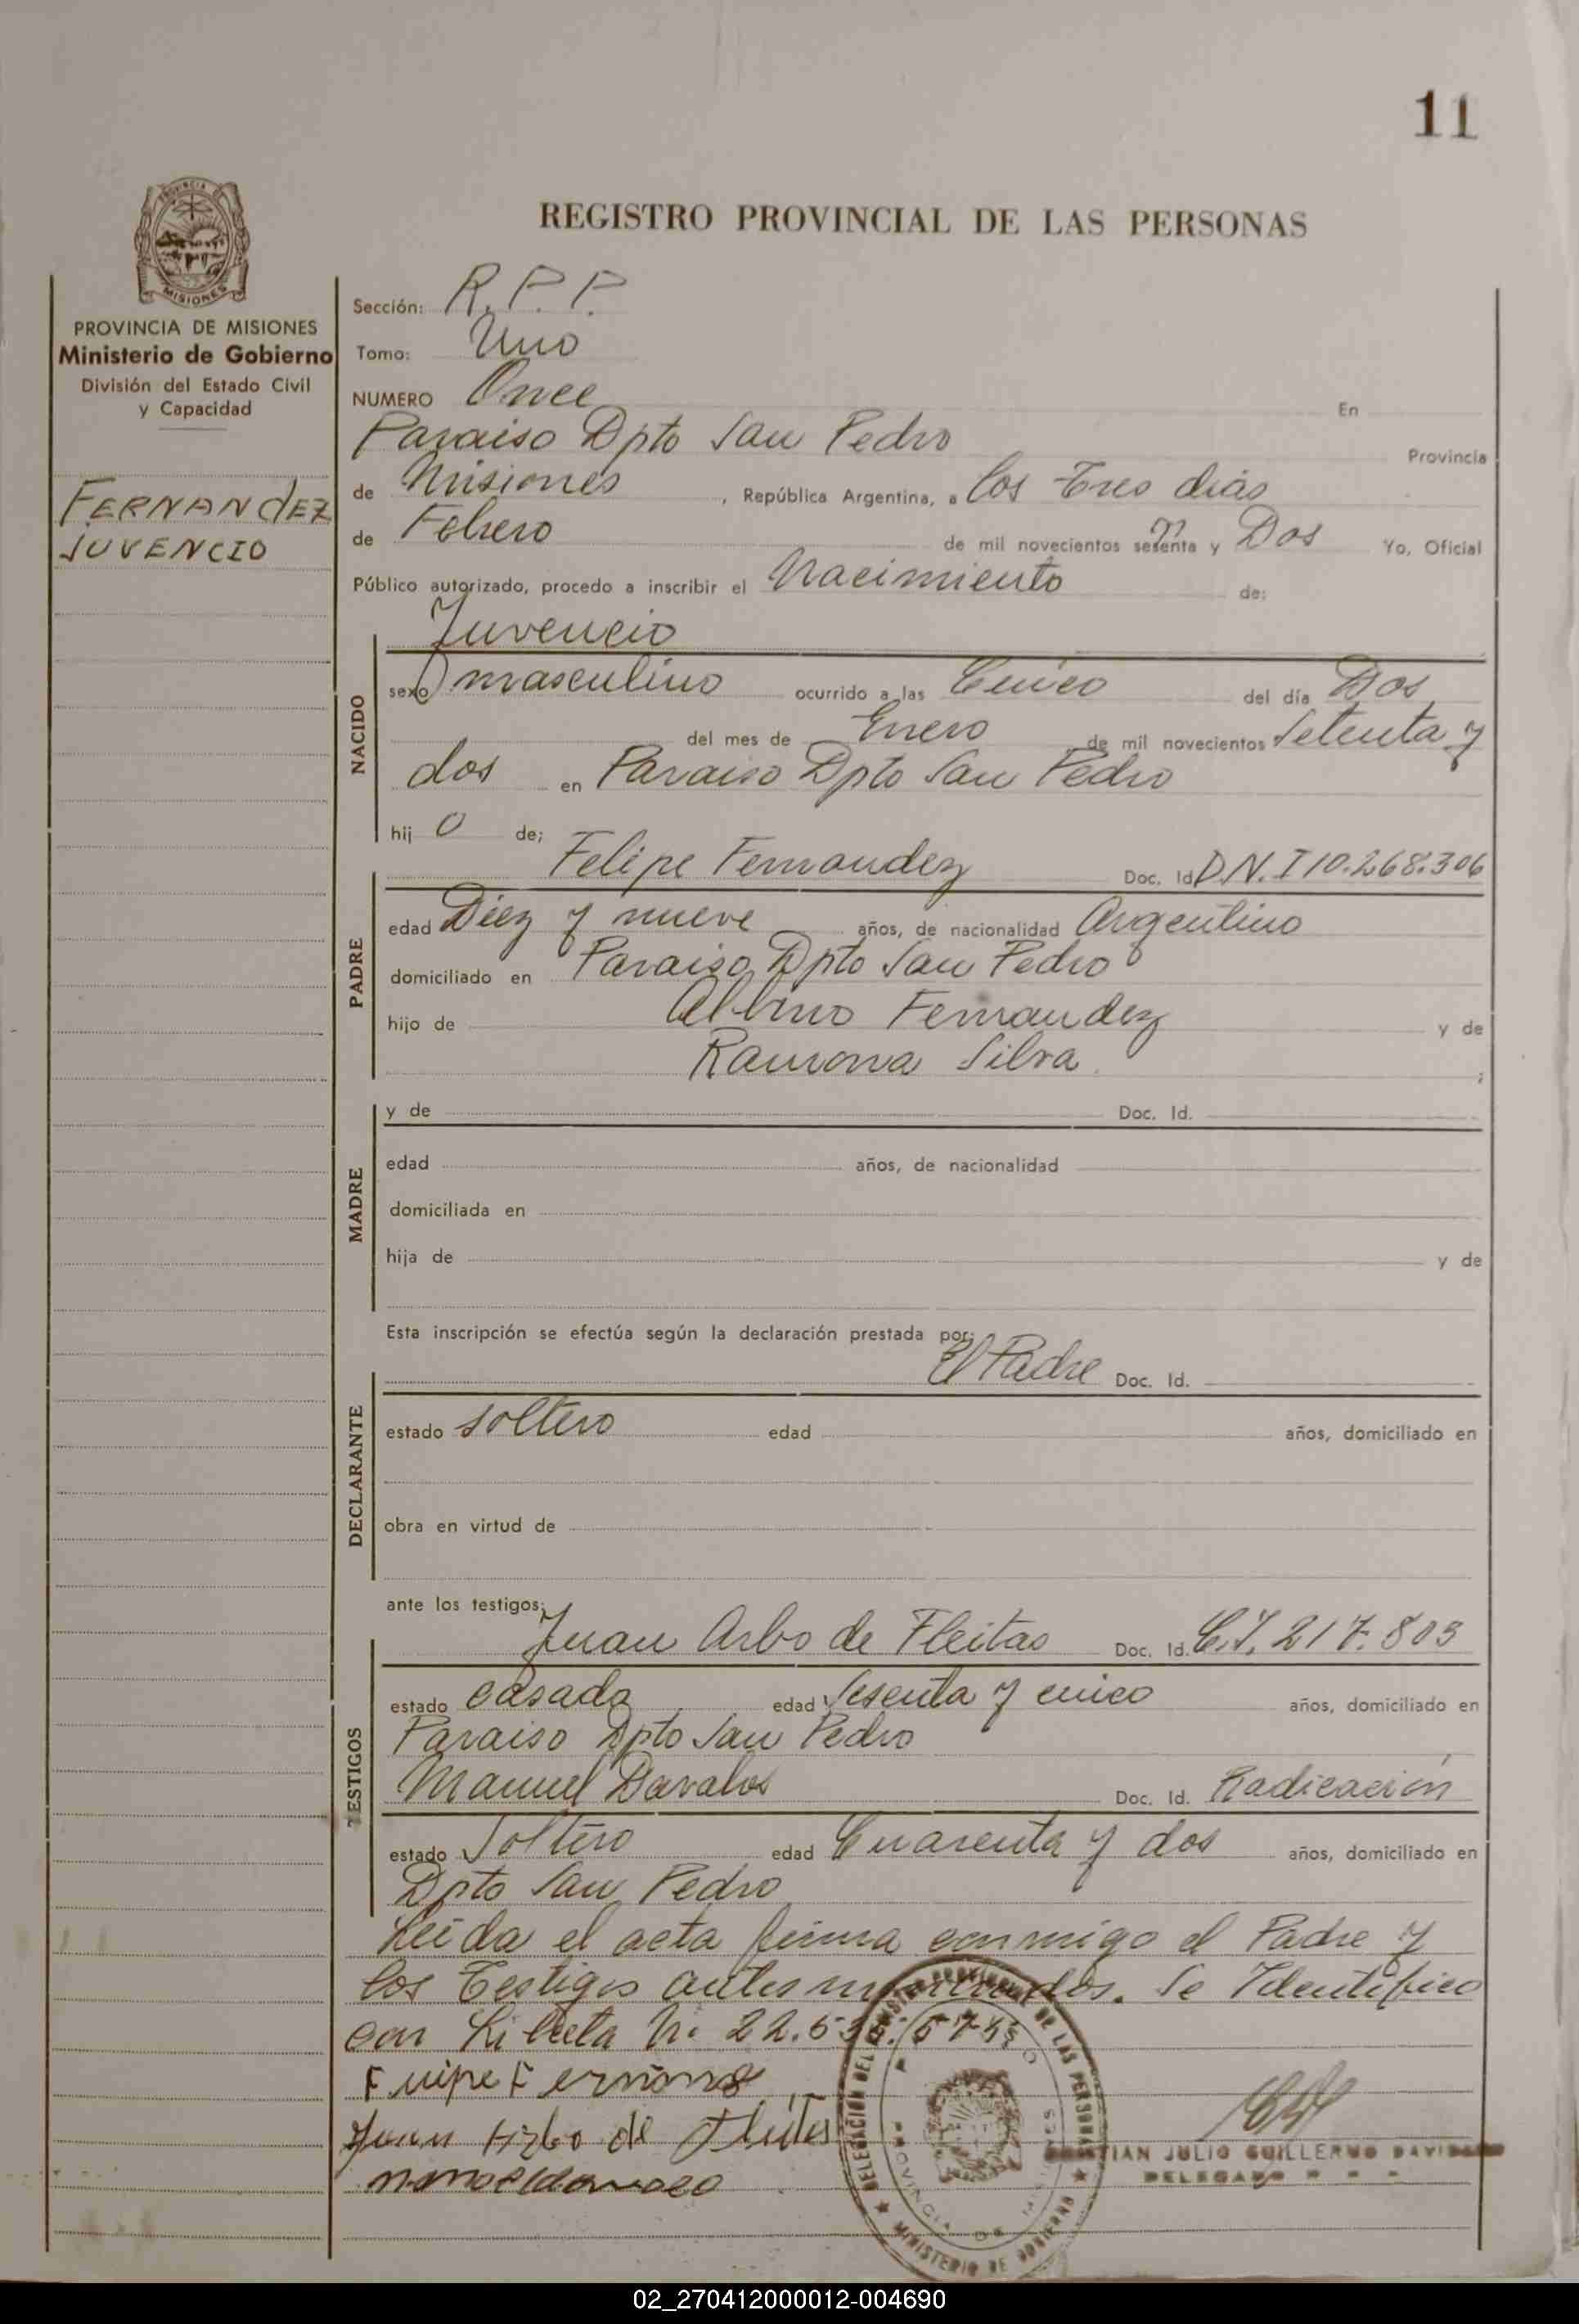 11
REGISTRO PROVINCIAL DE LAS PERSONAS
PROVINCIA DE
MISIONES
PROVINCIA DE MISIONES
Ministerio de Gobierno
División del Estado Civil
y Capacidad
FERNANdEZ
JUVENCIO
Sección: R.P.P.
Tomo: Uno
NUMERO Once En
Paraiso Dpto San Pedro Provincia
de Misiones, República Argentina, a los Tres dias
de Febrero de mil novecientos setenta y Dos Yo, Oficial
Público autorizado, procedo a inscribir el Nacimiento de:
Juvencio
NACIDO
sexo masculino ocurrido a las Cinco del día Dos
del mes de Enero de mil novecientos Setenta y
dos en Paraiso Dpto San Pedro
hij o de;
Felipe Fernandez Doc. Id D.N.I 10.268.306
PADRE
edad Diez y nueve años, de nacionalidad Argentino
domiciliado en Paraiso Dpto San Pedro
hijo de Albino Fernandez y de
Ramona Silva ;
MADRE
y de Doc. Id.
edad años, de nacionalidad
domiciliada en
hija de y de
Esta inscripción se efectúa según la declaración prestada por:
El Padre Doc. Id.
DECLARANTE
estado soltero edad años, domiciliado en
obra en virtud de
ante los testigos:
Juan Arbo de Fleitas Doc. Id. C.I. 217.803
TESTIGOS
estado casado edad Sesenta y cinco años, domiciliado en
Paraiso Dpto San Pedro
Manuel Davalos Doc. Id. Radicación
estado Soltero edad Cuarenta y dos años, domiciliado en
Dpto San Pedro
Leida el acta firma conmigo el Padre y
los Testigos antes mencionados. Se Identifico
con Libreta Nº 22.
Juan Arbo de
DELEGACION DEL REGISTRO PROVINCIAL DE LAS PERSONAS
MINISTERIO DE GOBIERNO
PROVINCIA DE MISIONES
JULIO GUILLERMO
DELEGADO
02_270412000012-004690